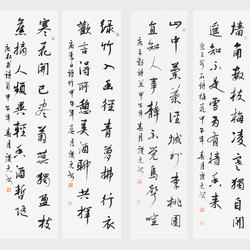 牆角數枝梅凌寒獨自開
遙知不是雪為有暗香來
山中蘭葉徑城外李桃園
豈知人事靜不覺鳥聲喧
綠竹入幽徑青蘿拂行衣
歡言得所憩美酒聊共揮
寒花開已盡菊蕊獨盈枝
舊摘人頻異輕香酒暫隨